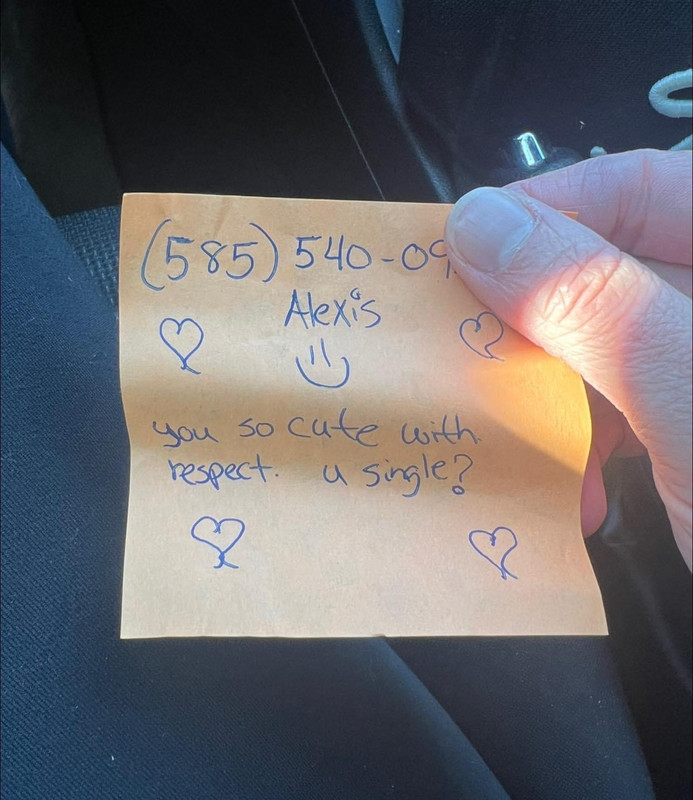 (585) 540-09
Alexis
you so cute with
respect. u single?